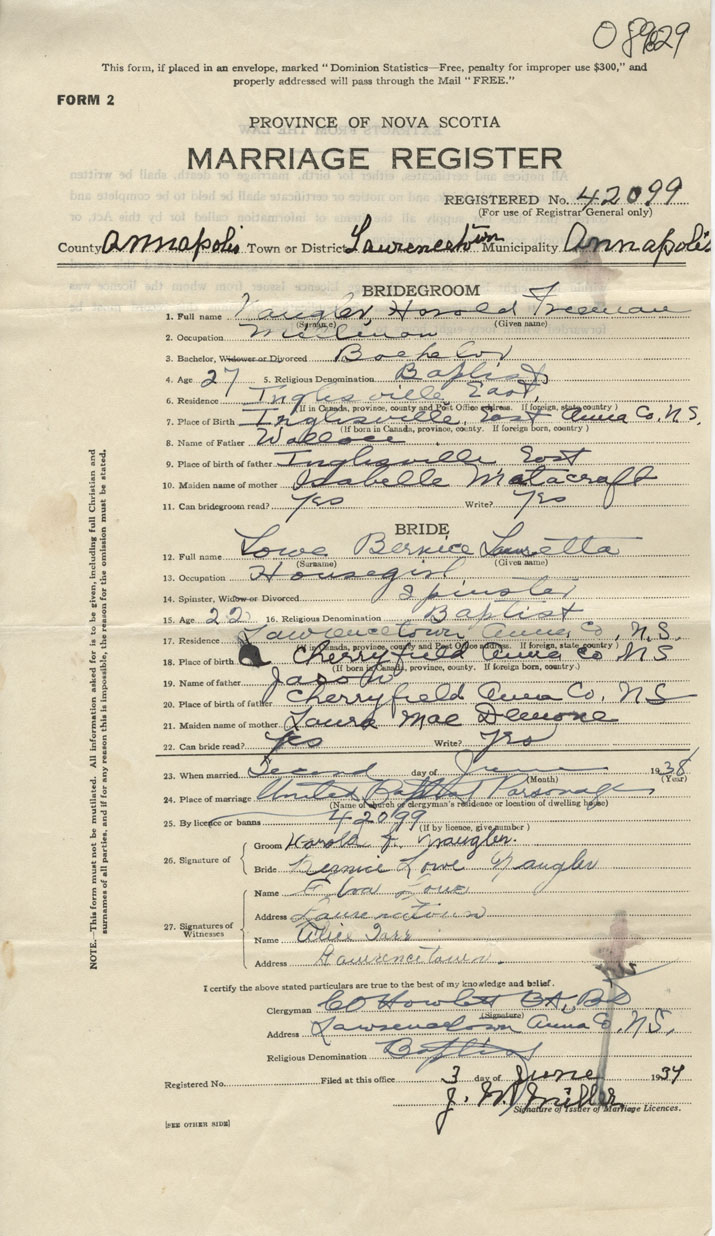 089829
This form, if placed in an envelope, marked "Dominion Statistics—Free, penalty for improper use $300," and
properly addressed will pass through the Mail "FREE."
FORM 2
PROVINCE OF NOVA SCOTIA
MARRIAGE REGISTER
REGISTERED No. 42099
(For use of Registrar General only)
County Annapolis Town or District Lawrencetown Municipality Annapolis
BRIDEGROOM
1. Full name Naugler, Harold Freeman
(Surname) (Given name)
2. Occupation Millman
3. Bachelor, Widower or Divorced Bachelor
4. Age 27 5. Religious Denomination Baptist
6. Residence Inglisville East,
(If in Canada, province, county and Post Office address. If foreign, state, country)
7. Place of Birth Inglisville, East Anna Co, N.S.
(If born in Canada, province, county. If foreign born, country)
8. Name of Father Wallace
9. Place of birth of father Inglisville East
10. Maiden name of mother Isabelle
11. Can bridegroom read? Yes Write? Yes
BRIDE
12. Full name Lowe Bernice Lauretta
(Surname) (Given name)
13. Occupation Housegirl
14. Spinster, Widow or Divorced Spinster
15. Age 22 16. Religious Denomination Baptist
17. Residence Lawrencetown, Anna, Co, N.S.
(If in Canada, province, county and Post Office address. If foreign, state, country)
18. Place of birth Cherryfield Anna Co NS
(If born in Canada, province, county. If foreign born, country.)
19. Name of father Jason
20. Place of birth of father Cherryfield Anna Co. NS
21. Maiden name of mother Laura Mae Demone
22. Can bride read? Yes Write? Yes
23. When married Second day of June 1938
(Month) (Year)
24. Place of marriage United Baptist Parsonage
(Name of church or clergyman's residence or location of dwelling house)
25. By licence or banns 42099
(If by licence, give number)
26. Signature of
Groom Harold F. Naugler.
Bride Bernice Lowe Naugler
27. Signatures of Witnesses
Name Elva Lowe
Address Lawrencetown
Name Alice
Address Lawrencetown.
I certify the above stated particulars are true to the best of my knowledge and belief.
Clergyman CO Howlett BA, BD
(Signature)
Address Lawrencetown Anna Co, N.S,
Religious Denomination Baptist
Registered No. Filed at this office 3 day of June 19
J. Miller
Signature of Issuer of Marriage Licences.
[SEE OTHER SIDE]
NOTE.—This form must not be mutilated. All information asked for is to be given, including full Christian and
surnames of all parties, and if for any reason this is impossible, the reason for the omission must be stated.